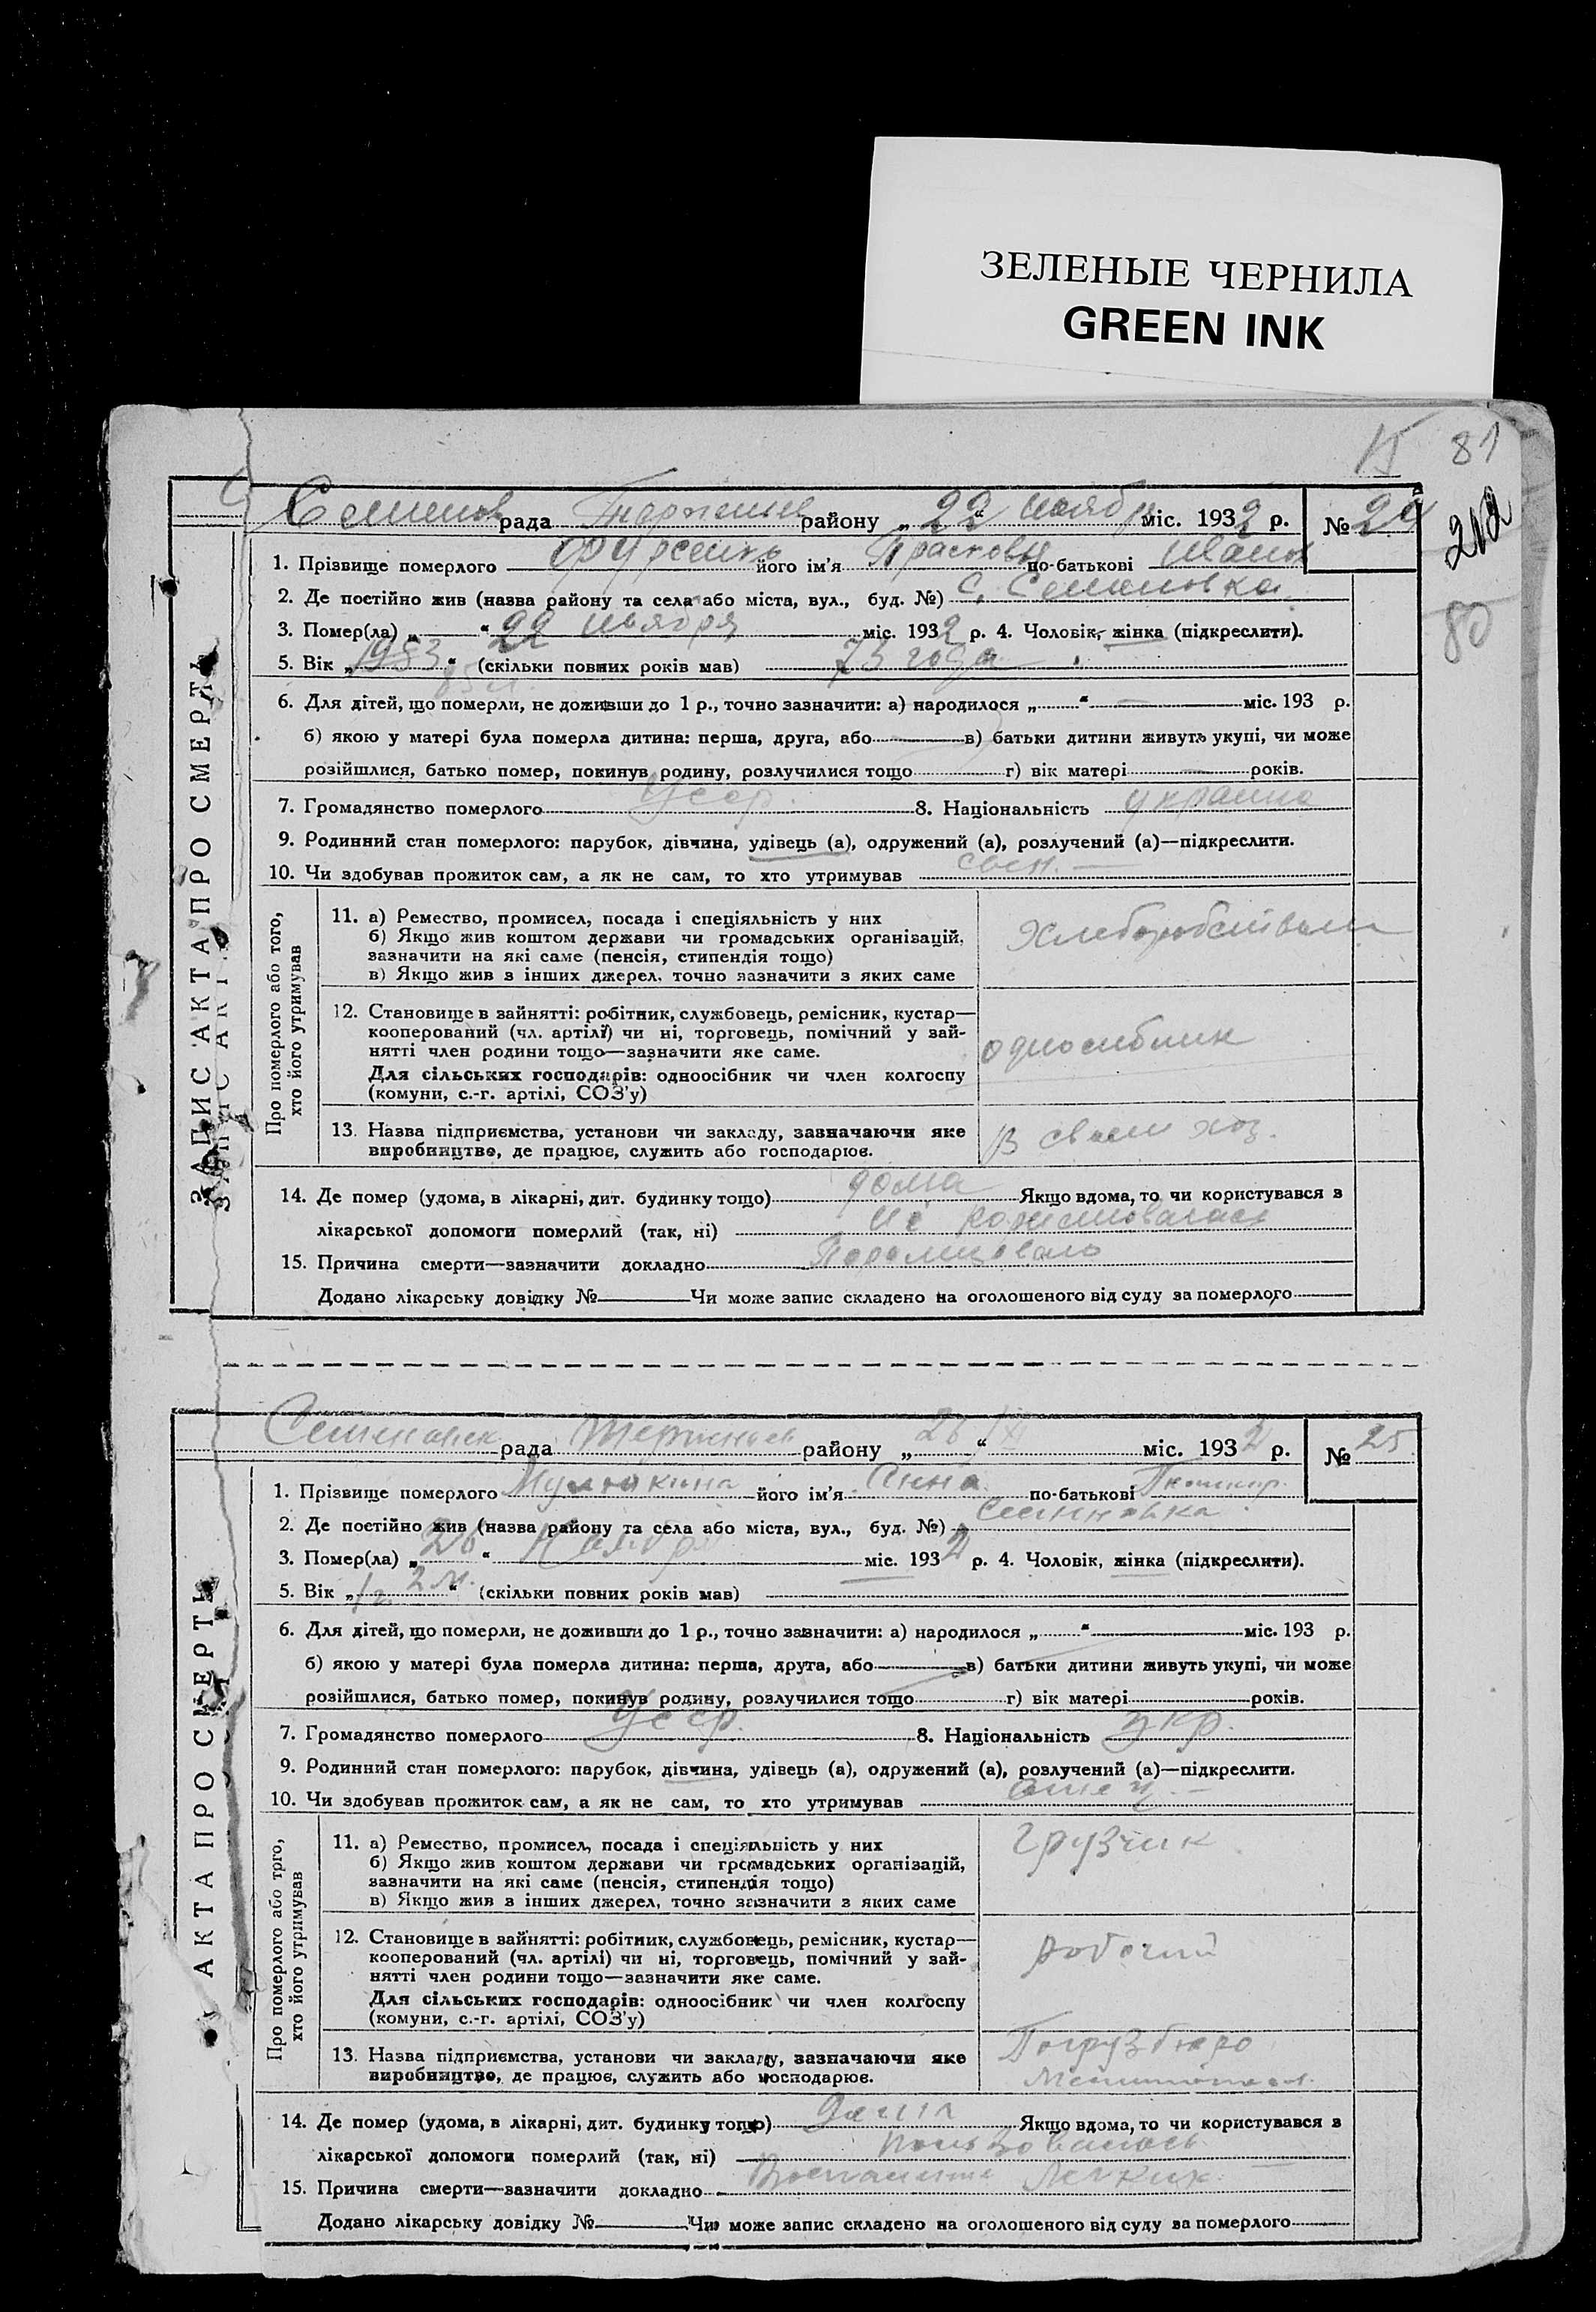 ЗЕЛЕНЫЕ ЧЕРНИЛА
GREEN INK
81
212
80
ЗАПИС АКТА ПРО СМЕРТЬ
рада району „22“ ноябр міс. 1932 р. № 24
1. Прізвище померлого його ім'я Прасковья по-батькові Иванов
2. Де постійно жив (назва району та села або міста, вул., буд. №) с. Семеновка
3. Помер(ла) „ “ 22 ноября міс. 1932 р. 4. Чоловік, жінка (підкреслити).
5. Вік „ “ (скільки повних років мав) 73 года
6. Для дітей, що померли, не доживши до 1 р., точно зазначити: а) народилося „ “ — міс. 193 р.
б) якою у матері була померла дитина: перша, друга, або в) батьки дитини живуть укупі, чи може
розійшлися, батько помер, покинув родину, розлучилися тощо г) вік матері — років.
7. Громадянство померлого Усср. 8. Національність украинка
9. Родинний стан померлого: парубок, дівчина, удівець (а), одружений (а), розлучений (а)—підкреслити.
10. Чи здобував прожиток сам, а як не сам, то хто утримував
Про померлого або того,
хто його утримував
11. а) Ремество, промисел, посада і спеціяльність у них
б) Якщо жив коштом держави чи громадських організацій,
зазначити на які саме (пенсія, стипендія тощо)
в) Якщо жив з інших джерел, точно зазначити з яких саме
12. Становище в зайнятті: робітник, службовець, ремісник, кустар—
кооперований (чл. артілі) чи ні, торговець, помічний у зай-
нятті член родини тощо—зазначити яке саме.
Для сільських господарів: одноосібник чи член колгоспу
(комуни, с.-г. артілі, СОЗ'у)
односибник
13. Назва підприємства, установи чи закладу, зазначаючи яке
виробництво, де працює, служить або господарює.
В своем хоз.
14. Де помер (удома, в лікарні, дит. будинку тощо) дома Якщо вдома, то чи користувався з
лікарської допомоги померлий (так, ні) не
15. Причина смерти—зазначити докладно
Додано лікарську довідку № Чи може запис складено на оголошеного від суду за померлого
АКТА ПРО СМЕРТЬ
рада району „26“ XI міс. 1932 р. № 25
1. Прізвище померлого його ім'я Анна по-батькові
2. Де постійно жив (назва району та села або міста, вул., буд. №)
3. Помер(ла) „26“ Ноября міс. 1932 р. 4. Чоловік, жінка (підкреслити).
5. Вік „1г. 2 м.“ (скільки повних років мав)
6. Для дітей, що померли, не доживши до 1 р., точно зазначити: а) народилося „ “ міс. 193 р.
б) якою у матері була померла дитина: перша, друга, або в) батьки дитини живуть укупі, чи може
розійшлися, батько помер, покинув родину, розлучилися тощо г) вік матері років.
7. Громадянство померлого Усср. 8. Національність укр.
9. Родинний стан померлого: парубок, дівчина, удівець (а), одружений (а), розлучений (а)—підкреслити.
10. Чи здобував прожиток сам, а як не сам, то хто утримував отец —
Про померлого або того,
хто його утримував
11. а) Ремество, промисел, посада і спеціяльність у них
б) Якщо жив коштом держави чи громадських організацій,
зазначити на які саме (пенсія, стипендія тощо)
в) Якщо жив з інших джерел, точно зазначити з яких саме
грузчик
12. Становище в зайнятті: робітник, службовець, ремісник, кустар—
кооперований (чл. артілі) чи ні, торговець, помічний у зай-
нятті член родини тощо—зазначити яке саме.
Для сільських господарів: одноосібник чи член колгоспу
(комуни, с.-г. артілі, СОЗ'у)
рабочий
13. Назва підприємства, установи чи закладу, зазначаючи яке
виробництво, де працює, служить або господарює.
Погрузбюро
14. Де помер (удома, в лікарні, дит. будинку тощо) дома Якщо вдома, то чи користувався з
лікарської допомоги померлий (так, ні) пользовалась
15. Причина смерти—зазначити докладно Воспаление легких
Додано лікарську довідку № Чи може запис складено на оголошеного від суду за померлого